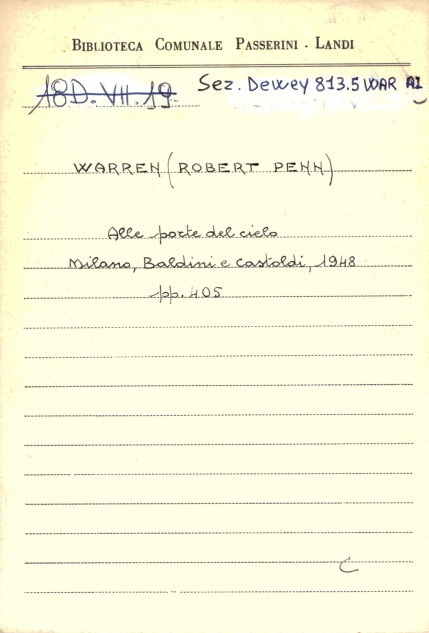 BIBLIOTECA COMUNALE PASSERINI - LANDI
18D.VII.19 Sez. Dewey 813.5 WAR A1
WARREN (ROBERT PENN)
Alle porte del cielo
Milano, Baldini e Castoldi, 1948
pp. 405
C